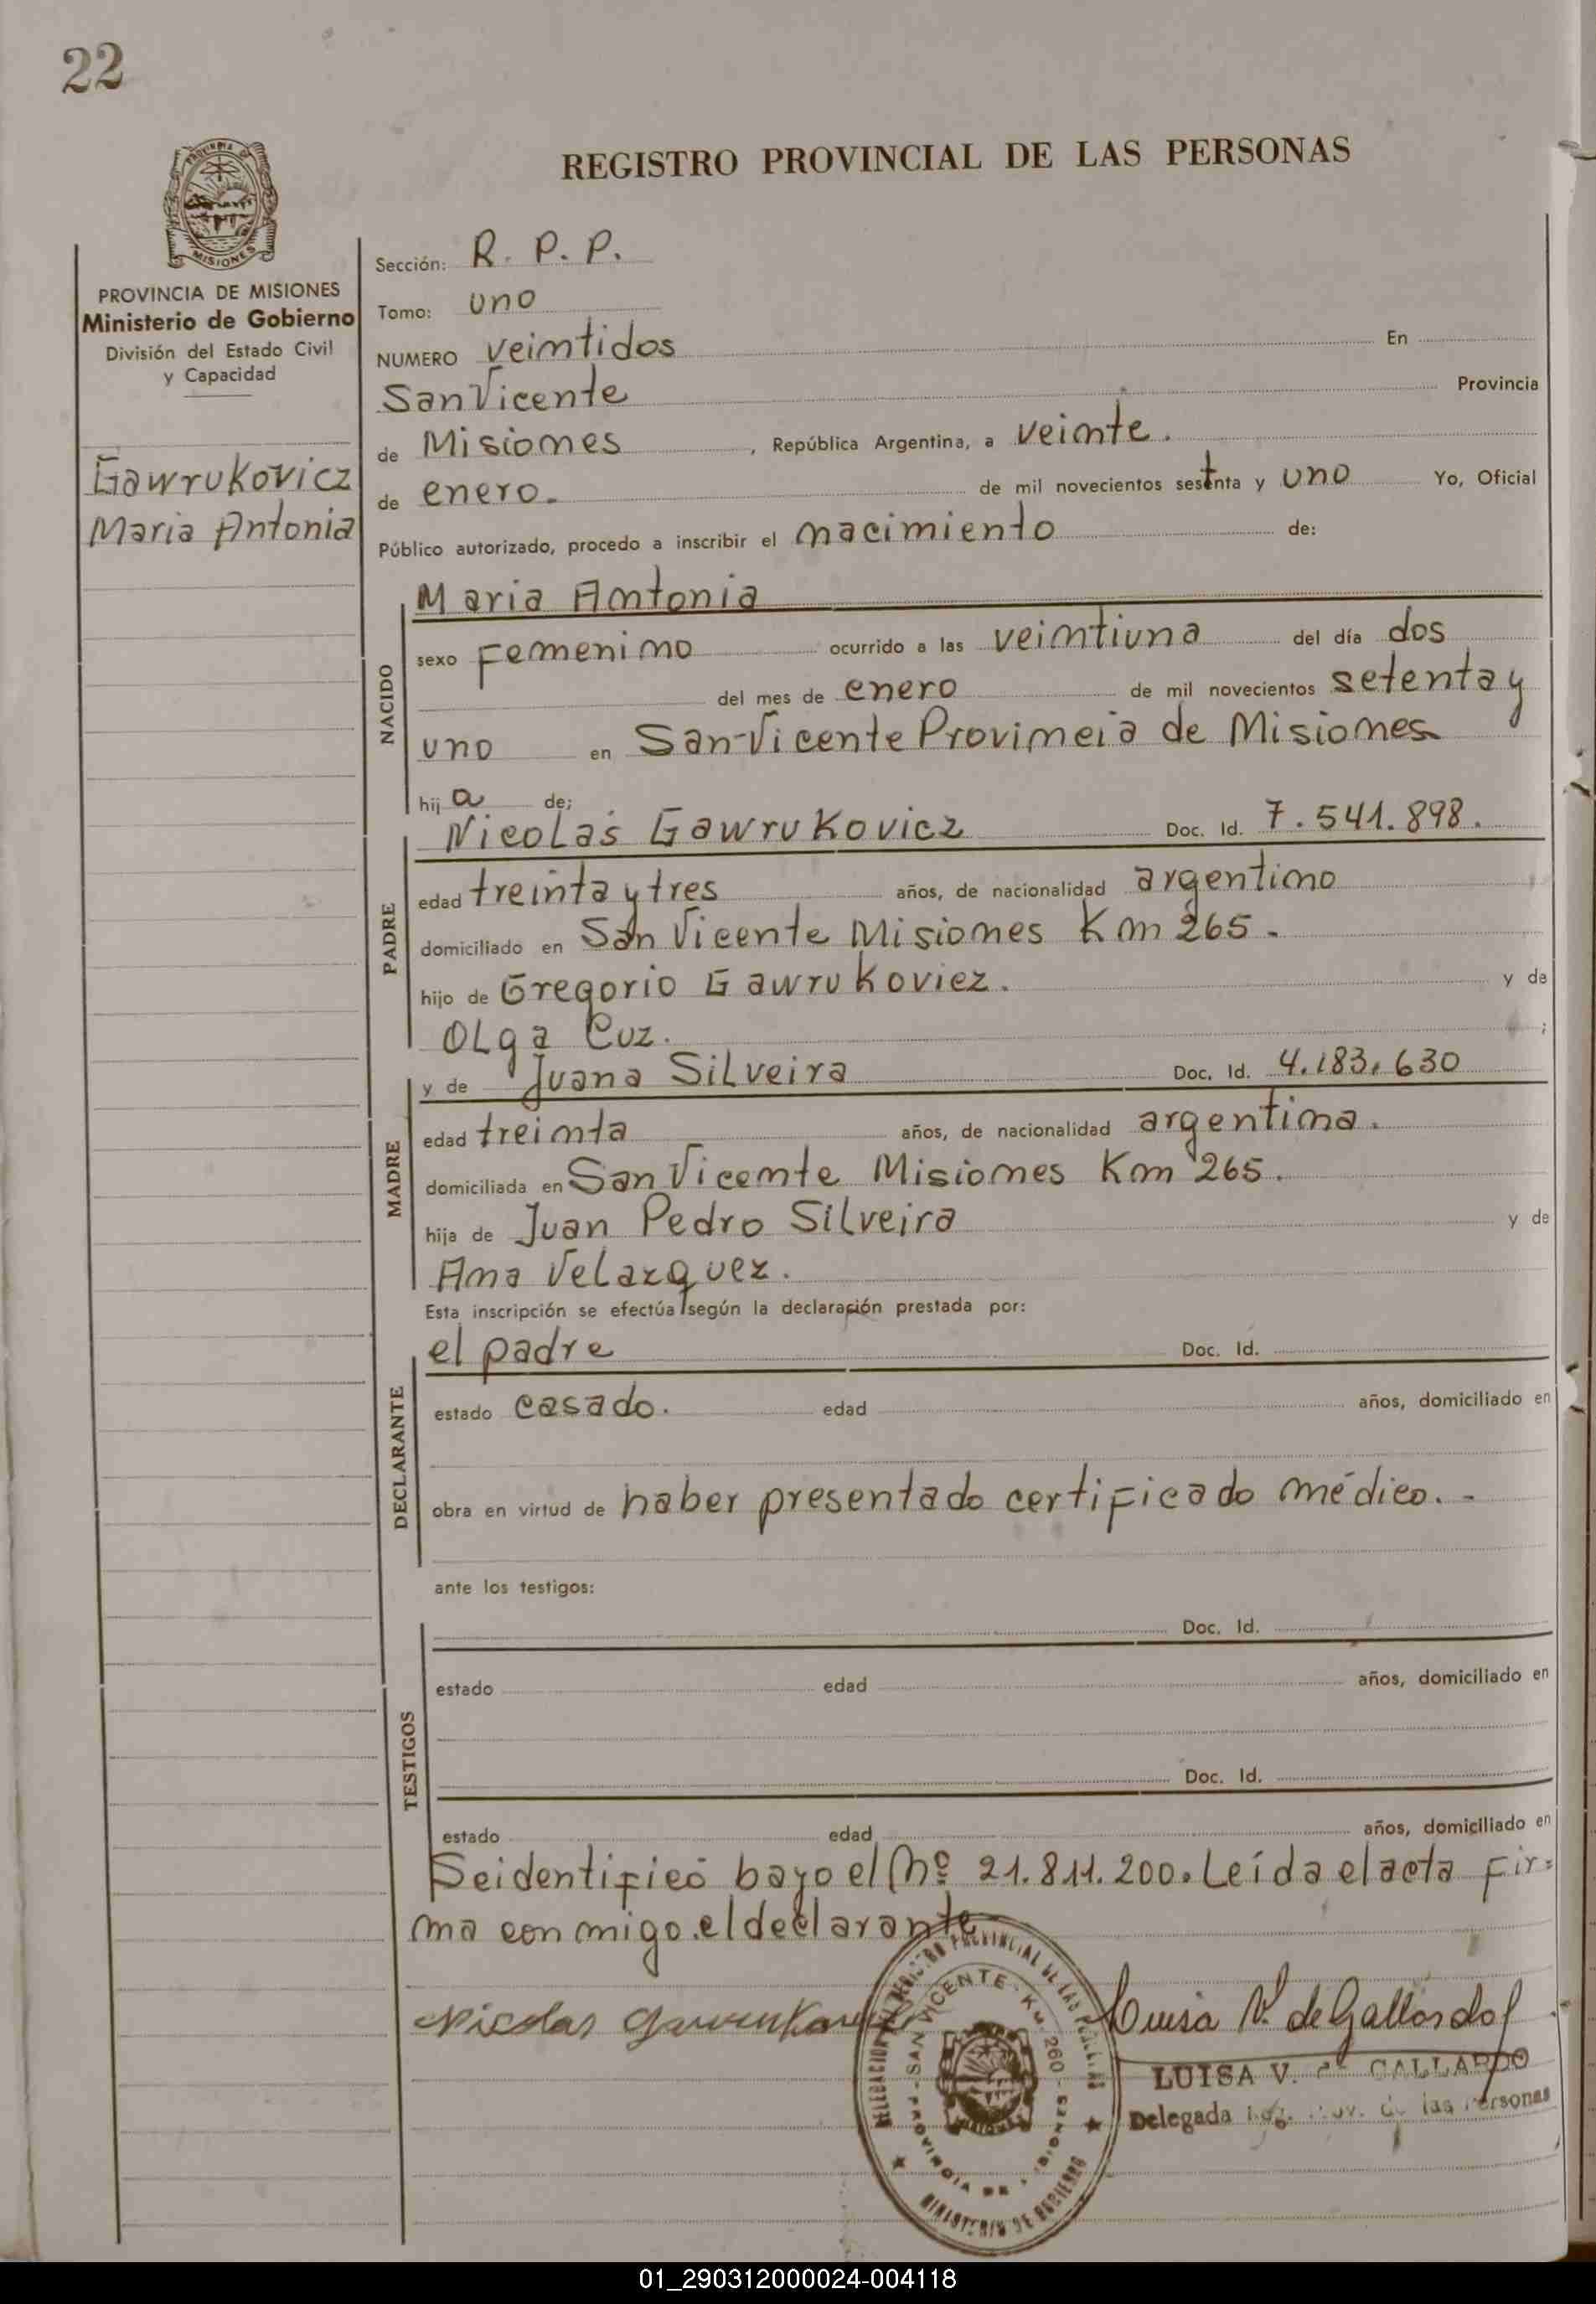 22
REGISTRO PROVINCIAL DE LAS PERSONAS
MISIONES
PROVINCIA DE MISIONES
Ministerio de Gobierno
División del Estado Civil
y Capacidad
Gawrukovicz
Maria Antonia
Sección: R. P. P.
Tomo: uno
NUMERO veimtidos En
San Vicente Provincia
de Misiomes, República Argentina, a veimte.
de enero. de mil novecientos sestnta y uno Yo, Oficial
Público autorizado, procedo a inscribir el nacimiento de:
NACIDO
Maria Amtonia
sexo Femenimo ocurrido a las veimtiuna del día dos
del mes de enero de mil novecientos setenta y
uno en San-Vicente Provimcia de Misiomes
hij a de;
PADRE
Nicolás Gawrukovicz Doc. Id. 7.541.898.
edad treinta y tres años, de nacionalidad argentimo
domiciliado en San Vicente Misiomes Km 265.
hijo de Gregorio Gawrukovicz. y de
Olga Cuz. ;
MADRE
y de Juana Silveira Doc. Id. 4.183.630
edad treimta años, de nacionalidad argentima.
domiciliada en San Vicemte Misiomes Km 265.
hija de Juan Pedro Silveira y de
Ama Velazquez.
Esta inscripción se efectúa según la declaración prestada por:
DECLARANTE
el padre Doc. Id.
estado casado. edad años, domiciliado en
obra en virtud de haber presentado certificado médico. -
ante los testigos:
TESTIGOS
Doc. Id.
estado edad años, domiciliado en
Doc. Id.
estado edad años, domiciliado en
Se identificó bajo el Nº 21.811.200. Leída el acta fir=
ma conmigo el declarante
Nicolas Gawrukovicz
Luisa V. de Gallardo
LUISA V. de GALLARDO
Delegada Reg. Prov. de las Personas
DELEGACION REGISTRO PROVINCIAL DE LAS PERSONAS
SAN VICENTE - KM. 260 - PROVINCIA DE MISIONES
MINISTERIO DE GOBIERNO
01_290312000024-004118